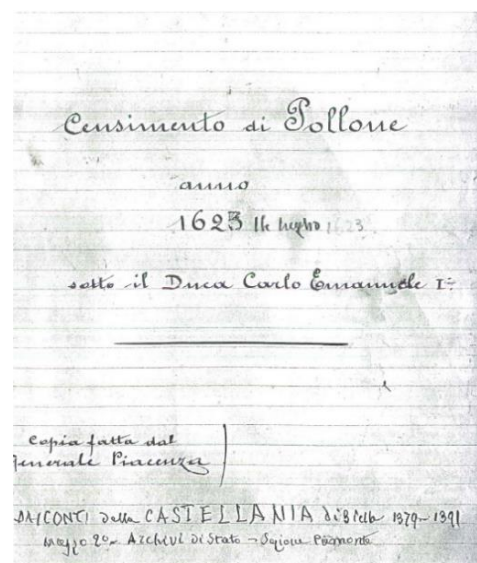 Censimento di Pollone
anno
1623 14 luglio 1623
sotto il Duca Carlo Emanuele I:
Copia fatta dal
Generale Piacenza
DAI CONTI della CASTELLANIA di Biella 1379-1391
mazzo 2º - Archivi di Stato - Sezione Piemonte